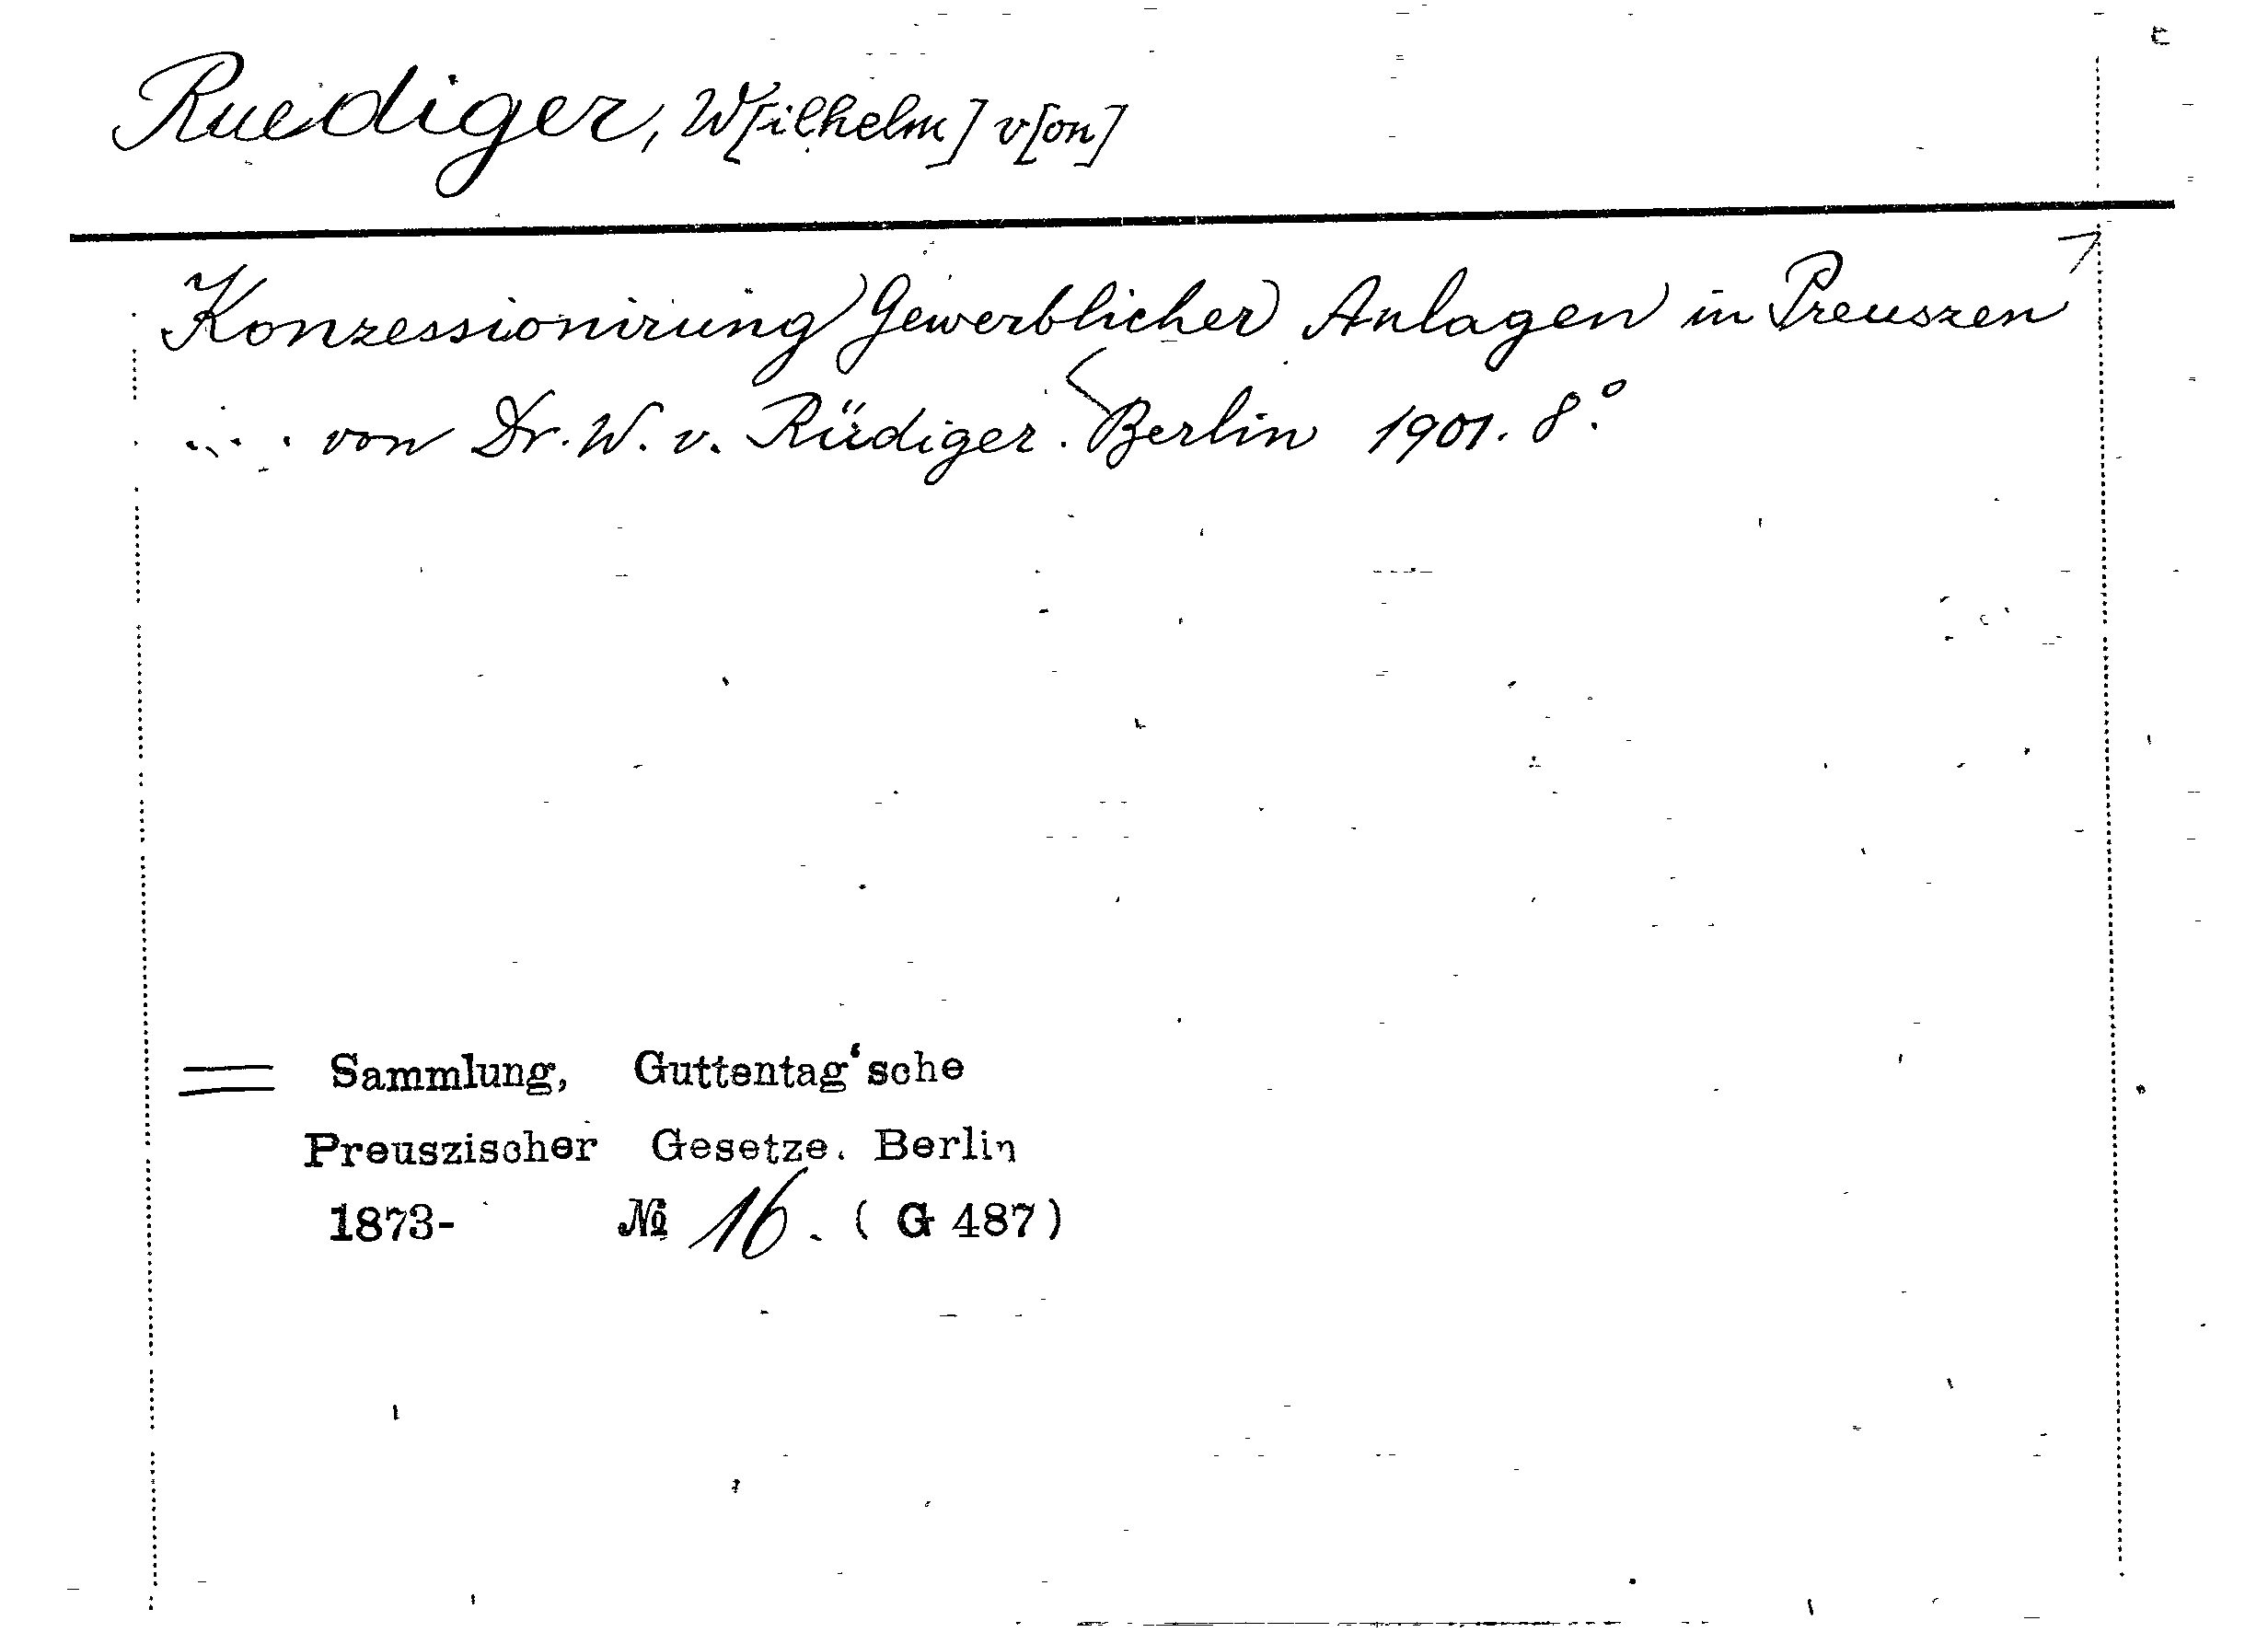 Ruediger, W[ilhelm] v[on]
Konzessionirung Gewerblicher Anlagen in Preuszen
.... von Dr. W. v. Rüdiger. Berlin 1901. 8º.
= Sammlung, Guttentag'sche
Preuszischer Gesetze. Berlin
1873- № 16. (G 487)